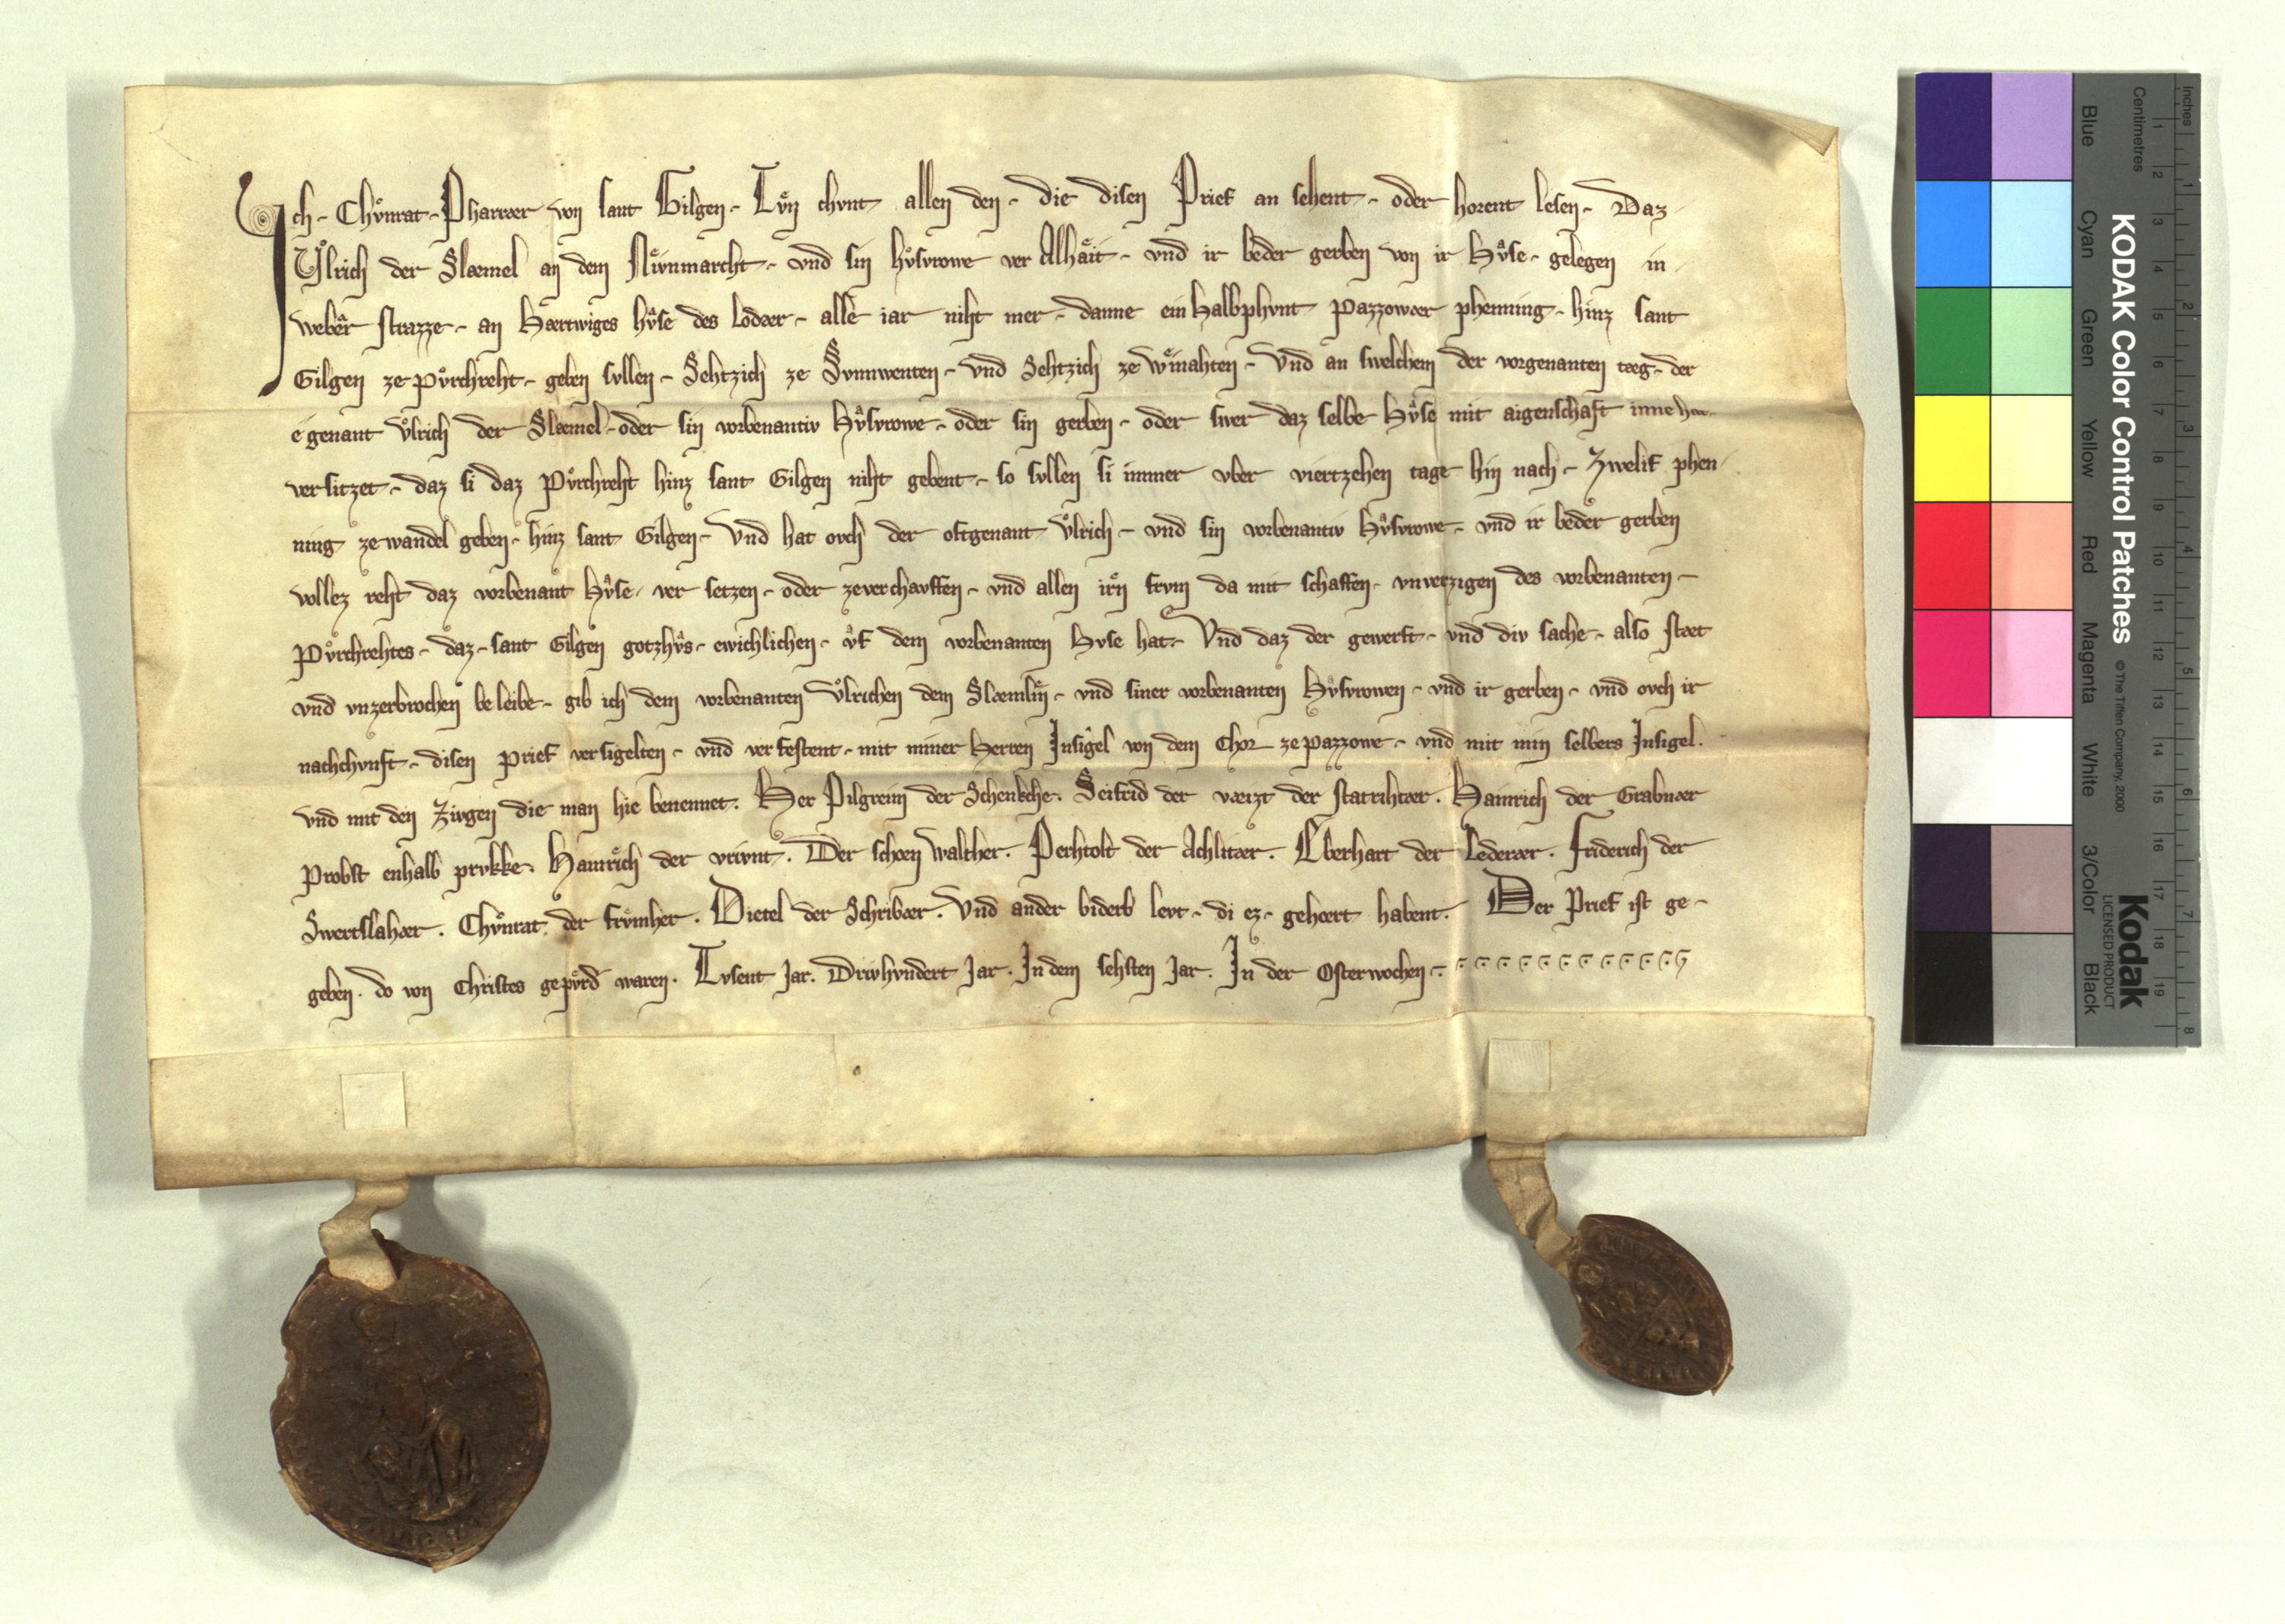 Ich - Chuͦnrat - Pharrær von sant Gilgen - Tvͤn chvnt allen den - die disen Prief an sehent - oder horent lesen - Daz -
Vͦlrich der Slæmel an dem Nivnmarcht - vnd sin hvͦsvrowe ver Alhæit - vnd ir beder gerben von ir Hvͦse - gelegen in -
weber strazze - an Hærtwiges hvͦse des Lodær - alle iar niht mer - danne ein Halbphvnt Pazzowær phenning - hinz sant
Gilgen ze Pvͦrchreht - geben svllen - Sehtzich ze Svnnwenten - vnd Sehtzich ze winahten - Vnd an swelchem der vorgenanten tæg - der
e genant Vͦlrich der Slæmel - oder sin vorbenantiv Hvͦsvrowe - oder sin gerben - oder swer daz selbe Hvͦse mit aigenschaft inne hat
versitzet - daz si daz Pvͦrchreht hinz sant Gilgen niht gebent - so svllen si immer vber viertzehen tage hin nach - Zwelif phen-
ning ze wandel geben - hinz sant Gilgen - Vnd hat ovch der oftgenant Vͦlrich - vnd sin vorbenantiv Hvͦsvrowe - vnd ir beder gerben
vollez reht daz vorbenant Hvͦse - ver setzen - oder ze verchavffen - vnd allen irn frvm da mit schaffen - vnverzigen des vorbenanten -
Pvͦrchrehtes - daz - sant Gilgen gotzhvͦs - ewichlichen - vͦf dem vorbenanten Hvse hat - Vnd daz der gewerft - vnd div sache - also stæt
vnd vnzerbrochen beleibe - gib ich dem vorbenanten Vͦlrichen dem Slæmlin - vnd siner vorbenanten Hvͦsvrowen - vnd ir gerben - vnd ovch ir
nachchvnft - disen Prief versigelten - vnd verfestent - mit miner Herren Insigel von dem Chor ze Pazzowe - vnd mit min selbers Insigel.
vnd mit den Zivgen die man hie benennet. Her Pilgreim der Schenkche. Seifrid der værzt der statrihtær. Hainrich der Grabnær
Probst enhalb prvkke. Hainrich der vrivnt. Der schoen Walther. Perhtolt der Achlitær. Eberhart der Lederær. Friderich der
Swertslahær. Chvͦnrat der frvͤmher. Dietel der Schribær. Vnd ander biderb levt - di ez - gehoert habent. Der Prief ist ge -
geben. do von Christes gepvͤrd waren. Tvsent Jar. Drivhvndert Jar. In dem sehsten Jar. In der Osterwochen -
Inches
Centimetres
1 2 3 4 5 6 7 8 9 10 11 12 13 14 15 16 17 18 19
1 2 3 4 5 6 7 8
KODAK Color Control Patches © The Tiffen Company, 2000
Kodak
LICENSED PRODUCT
Blue Cyan Green Yellow Red Magenta White 3/Color Black